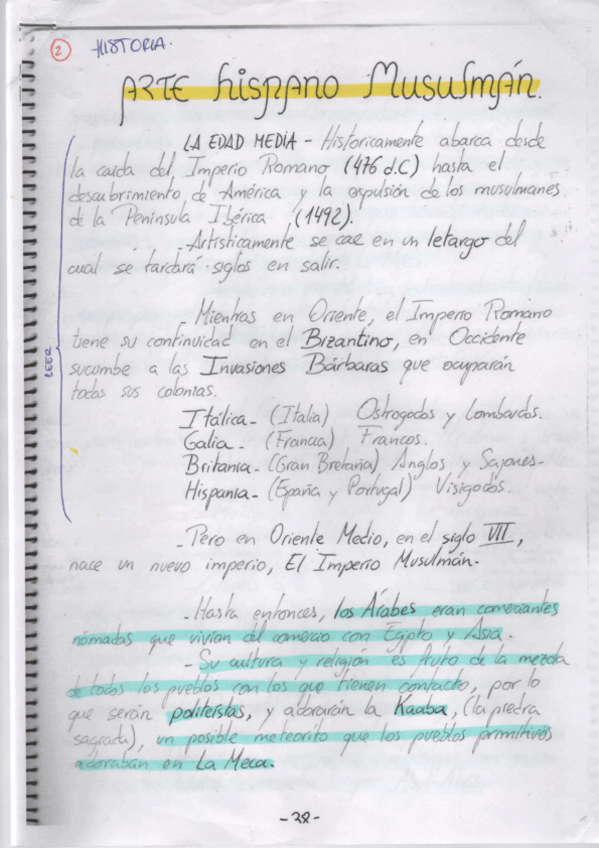 2 HISTORIA.
ARTE hispano Musulmán.
LA EDAD MEDIA - Historicamente abarca desde
la caida del Imperio Romano (476 d.C) hasta el
descubrimiento de América y la expulsión de los musulmanes
de la Península Ibérica (1492).
- Artisticamente se cae en un letargo del
cual se tardará siglos en salir.
- Mientras en Oriente, el Imperio Romano
tiene su continuidad en el Bizantino, en Occidente
sucumbe a las Invasiones Bárbaras que ocuparán
todas sus colonias.
LEER
Itálica - (Italia) Ostrogodos y Lombardos.
Galia - (Francia) Francos.
Britania - (Gran Bretaña) Anglos y Sajones-
Hispania - (España y Portugal) Visigodos.
- Pero en Oriente Medio, en el siglo VII,
nace un nuevo imperio, El Imperio Musulmán.
- Hasta entonces, los Árabes eran comerciantes
nómadas que vivian del comercio con Egipto y Asia.
- Su cultura y religión es fruto de la mezcla
de todos los pueblos con los que tienen contacto, por lo
que serán politeístas, y adorarán la Kaaba, (la piedra
sagrada), un posible meteorito que los pueblos primitivos
adoraban en La Meca.
- 38 -